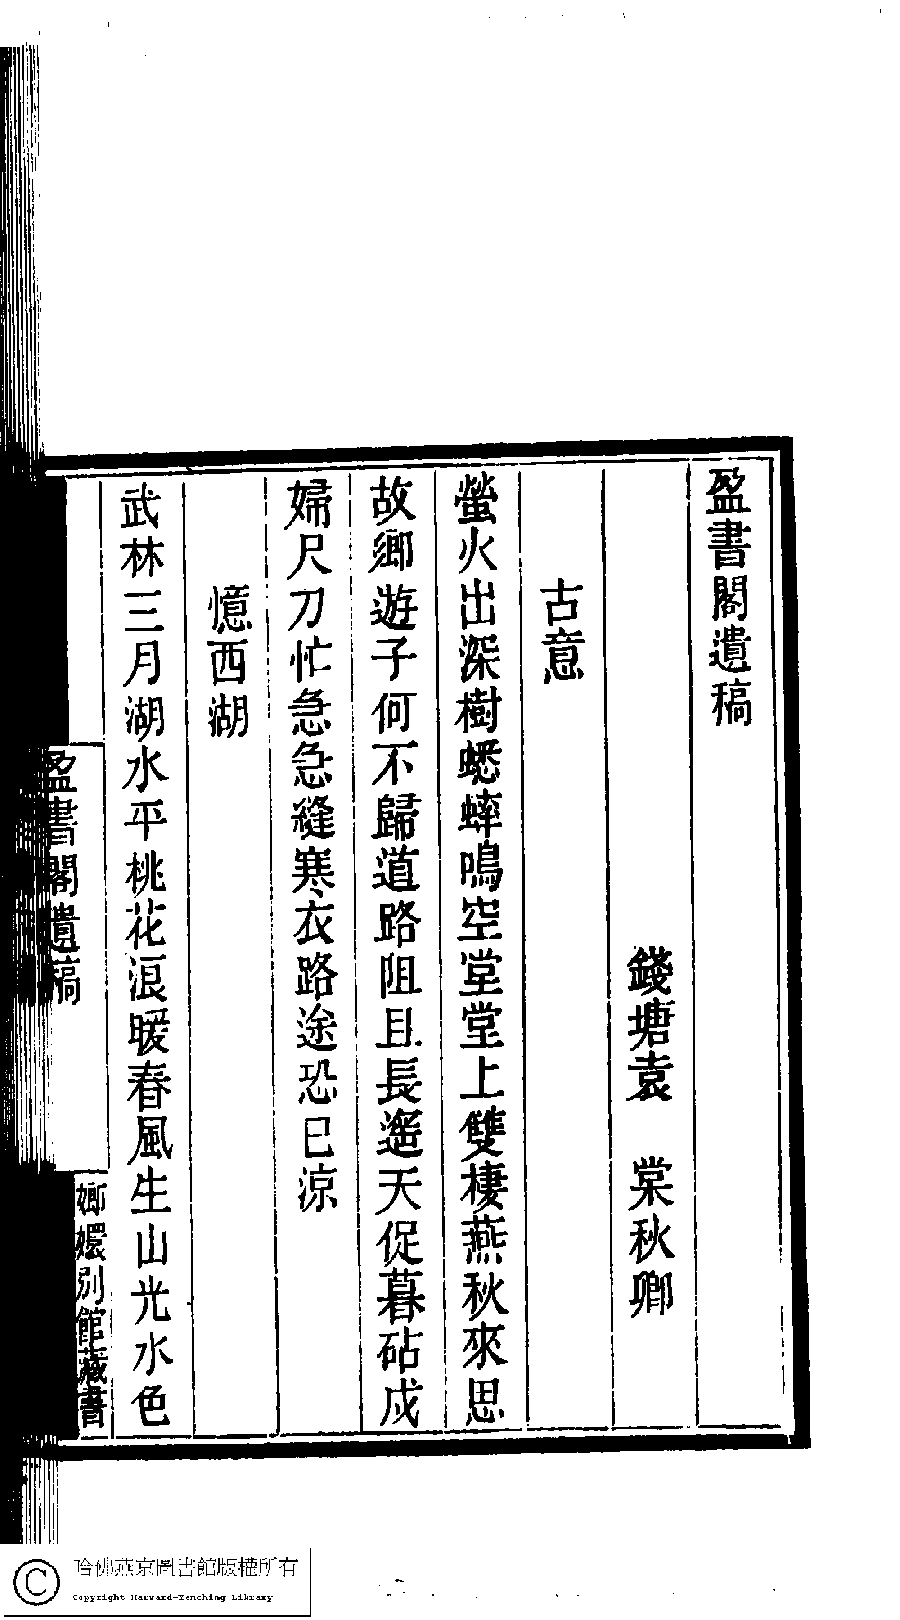 盈書閣遺稿
錢塘袁　棠秋卿
古意
螢火出深樹蟋蟀鳴空堂堂上雙棲燕秋來思
故鄉遊子何不歸道路阻且長遙天促暮砧戍
婦尺刀忙急急縫寒衣路途恐已涼
憶西湖
武林三月湖水平桃花浪暖春風生山光水色
盈書閣遺稿
嫏嬛別館藏書
哈佛燕京圖書館版權所有
Copyright Harvard-Yenching Library